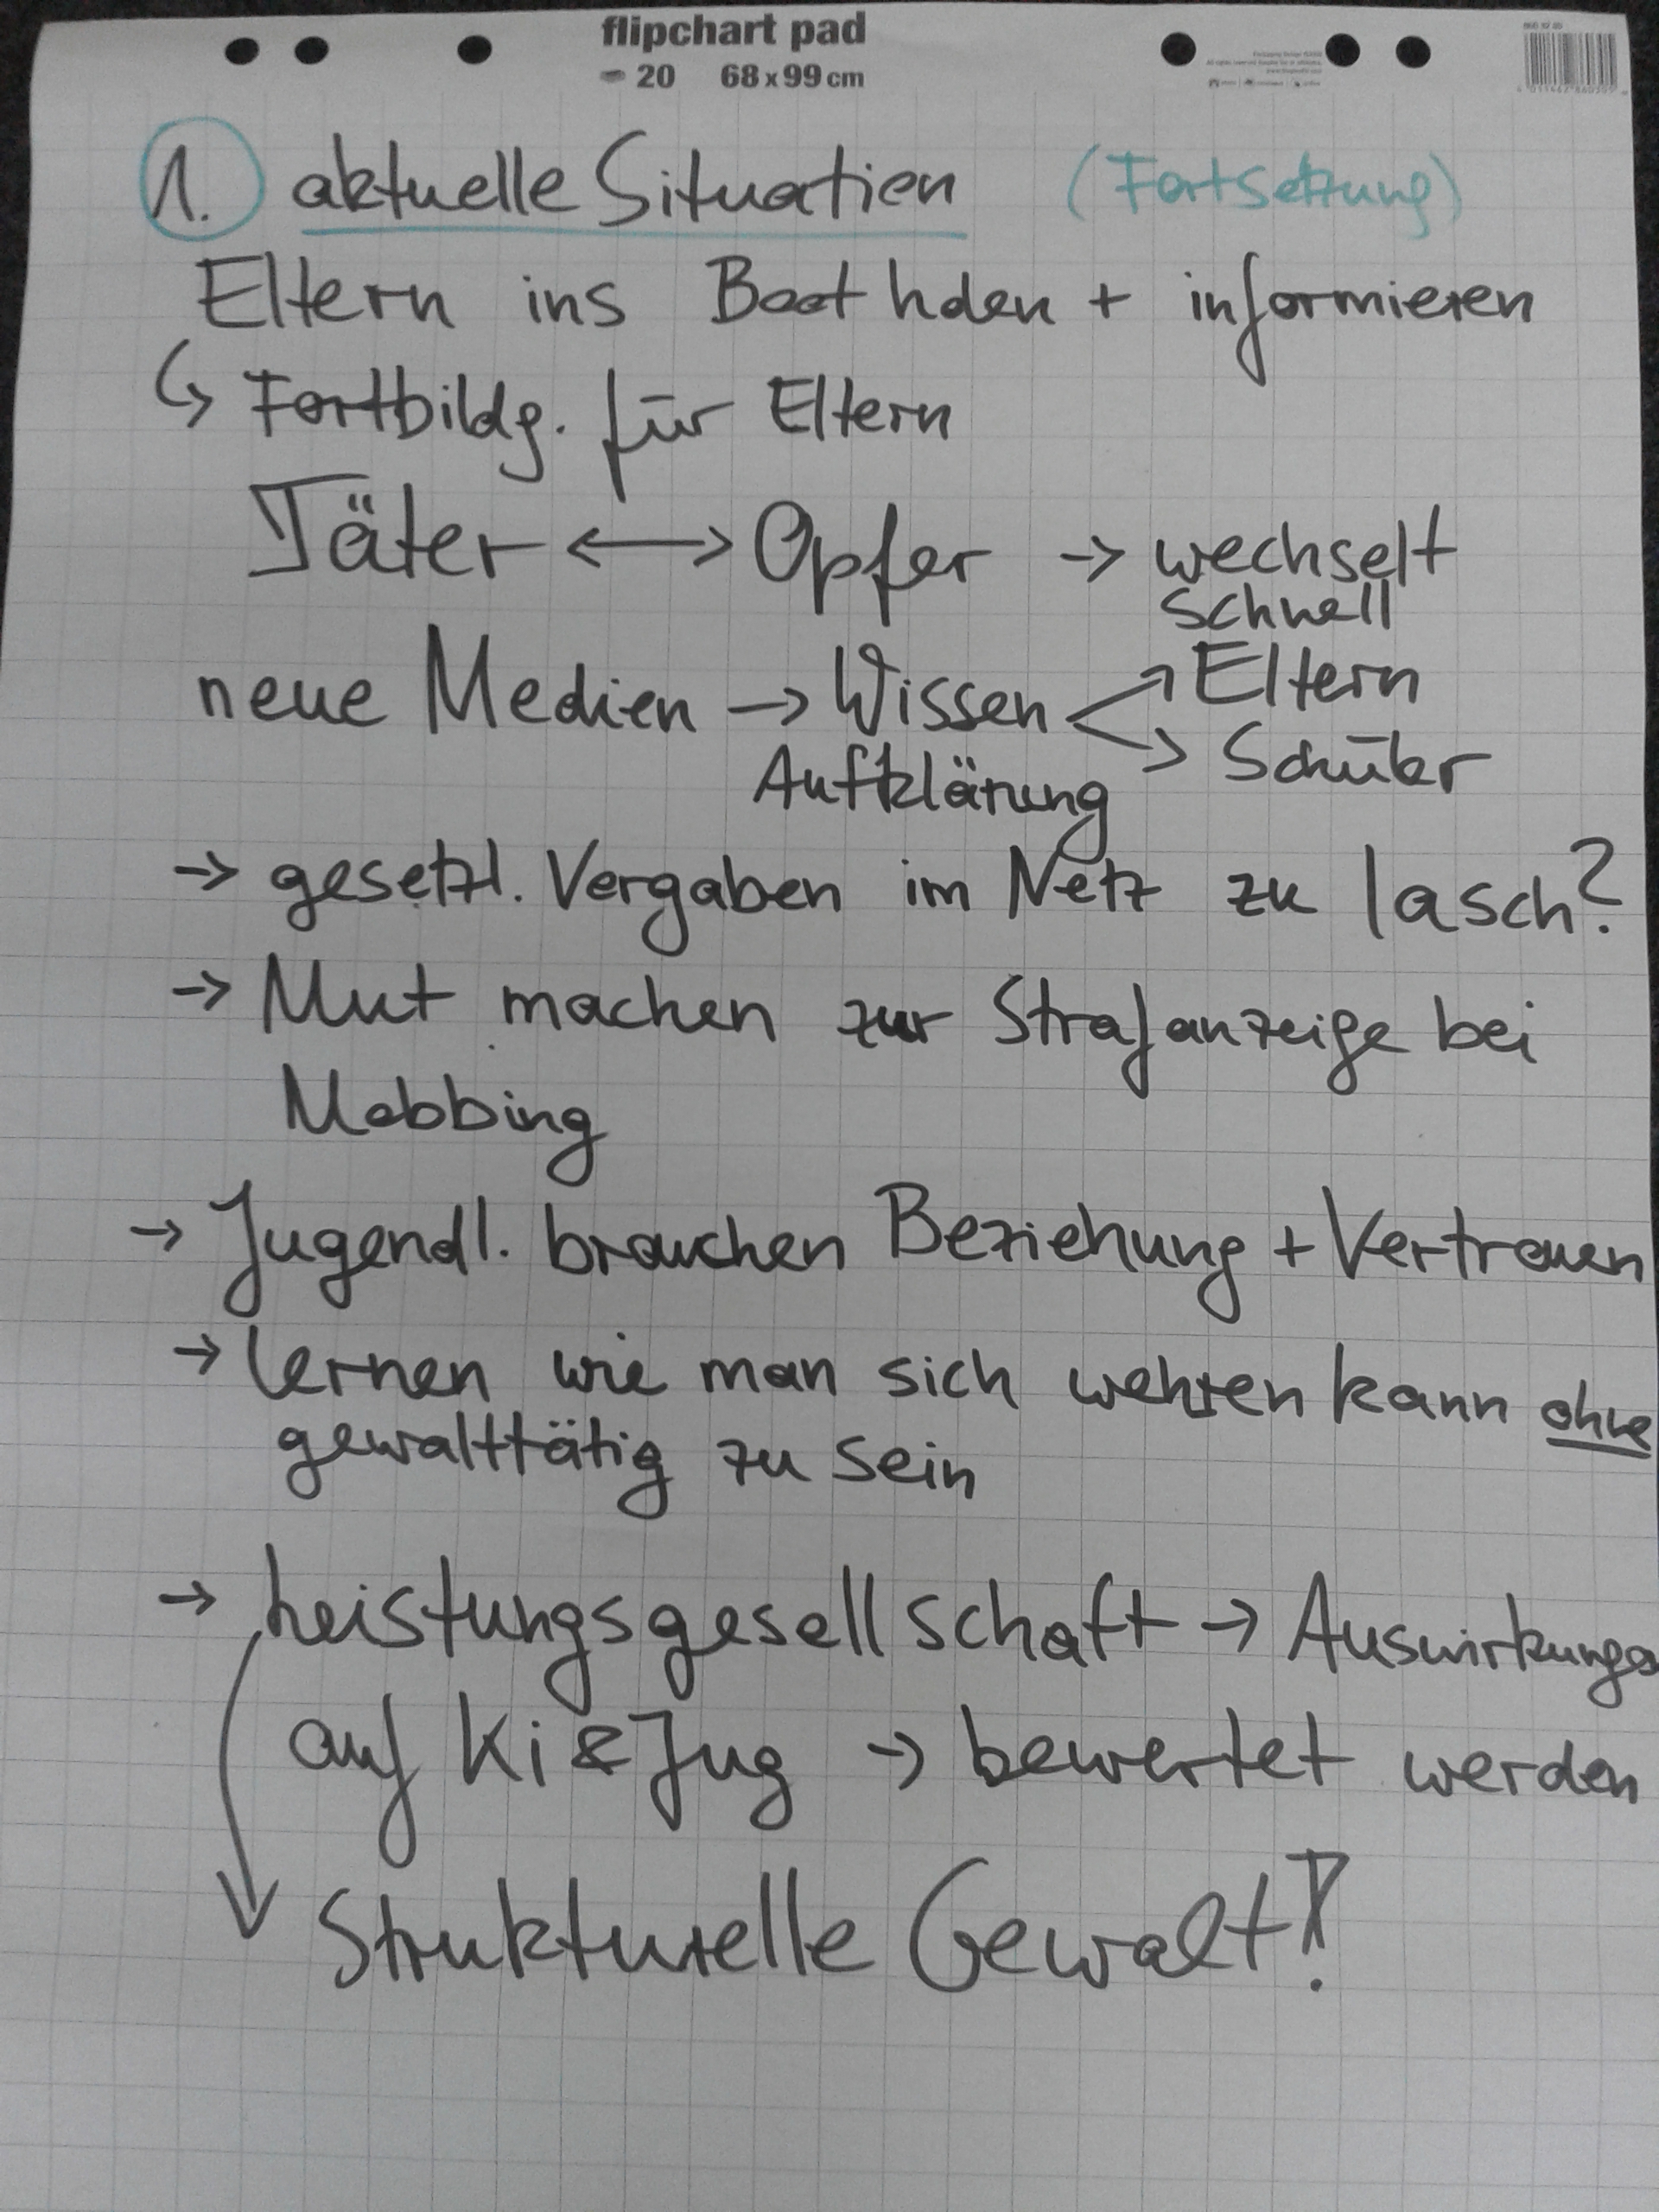 flipchart pad
20 68 x 99 cm
1. aktuelle Situation (Fortsetzung)
Eltern ins Boot holen + informieren
↳ Fortbildg. für Eltern
Täter ←→ Opfer → wechselt
schnell
neue Medien → Wissen < Eltern
Aufklärung → Schüler
→ gesetzl. Vergaben im Netz zu lasch?
→ Mut machen zur Strafanzeige bei
Mobbing
→ Jugendl. brauchen Beziehung + Vertrauen
→ lernen wie man sich wehren kann ohne
gewalttätig zu sein
→ Leistungsgesellschaft → Auswirkungen
auf Ki & Jug → bewertet werden
Strukturelle Gewalt!